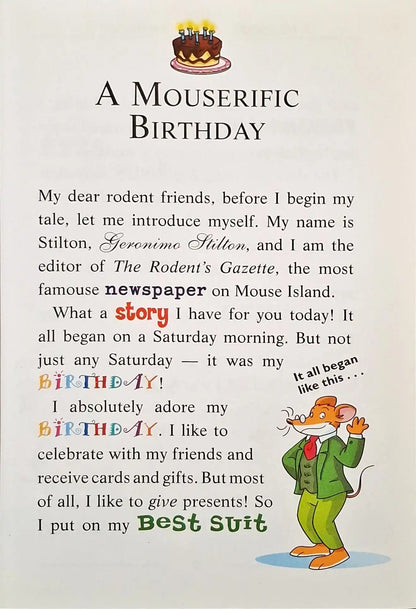 A Mouserific
Birthday
My dear rodent friends, before I begin my
tale, let me introduce myself. My name is
Stilton, Geronimo Stilton, and I am the
editor of The Rodent's Gazette, the most
famouse newspaper on Mouse Island.
What a story I have for you today! It
all began on a Saturday morning. But not
just any Saturday — it was my
BiRTHDAY!
I absolutely adore my
BiRTHDAY. I like to
celebrate with my friends and
receive cards and gifts. But most
of all, I like to give presents! So
I put on my BeSt SUit
It all began
like this . . .